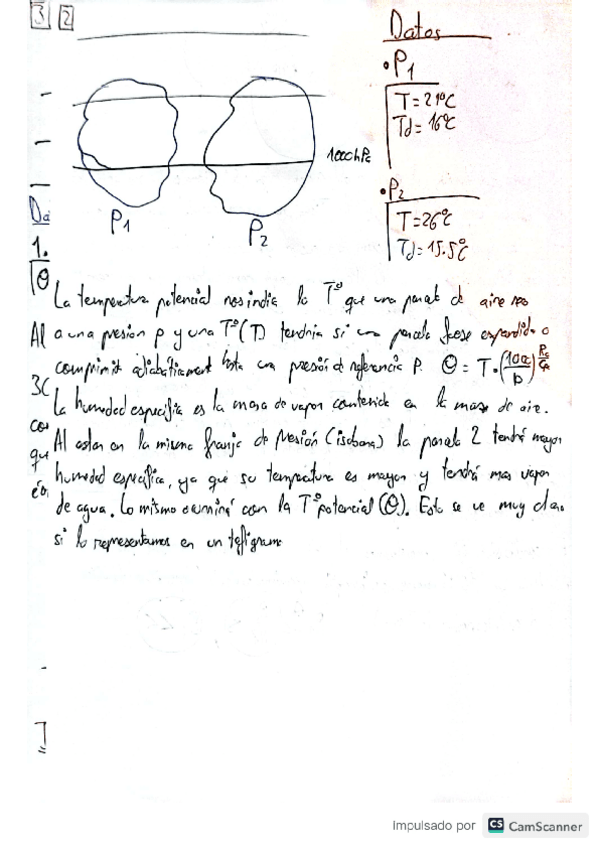 3 2
Datos
• P1
T = 21°C
Td = 16°C
1000 hPa
• P2
T = 26°C
Td = 15.5°C
P1
P2
Da
1.
La temperatura potencial nos indica la Tº que una parcela de aire seco
Al a una presion p y una Tº (T) tendria si una parcela fuese expandida o
comprimida adiabáticamente hasta una presión de referencia P. Θ = T·(1000/p)^
3C
La humedad especifica es la masa de vapor contenida en la masa de aire.
Al estar en la misma franja de presión (isobara) la parcela 2 tendrá mayor
qu
humedad especifica, ya que su temperatura es mayor y tendrá mas vapor
de agua. Lo mismo ocurrirá con la Tº potencial (Θ). Esto se ve muy claro
si lo representamos en un tefigrama
Impulsado por CS CamScanner